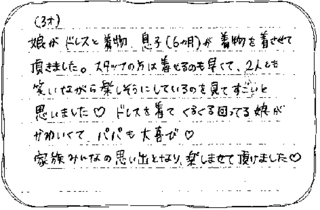 (3才)
娘がドレスと着物、息子(6ヶ月)が着物を着させて
頂きました。スタッフの方は着せるのも早くて、2人とも
笑いながら楽しそうにしているのを見てすごいと
思いました♡ ドレスを着てくるくる回ってる娘が
かわいくて、パパも大喜び♡
家族みんなの思い出となり、楽しませて頂けました♡